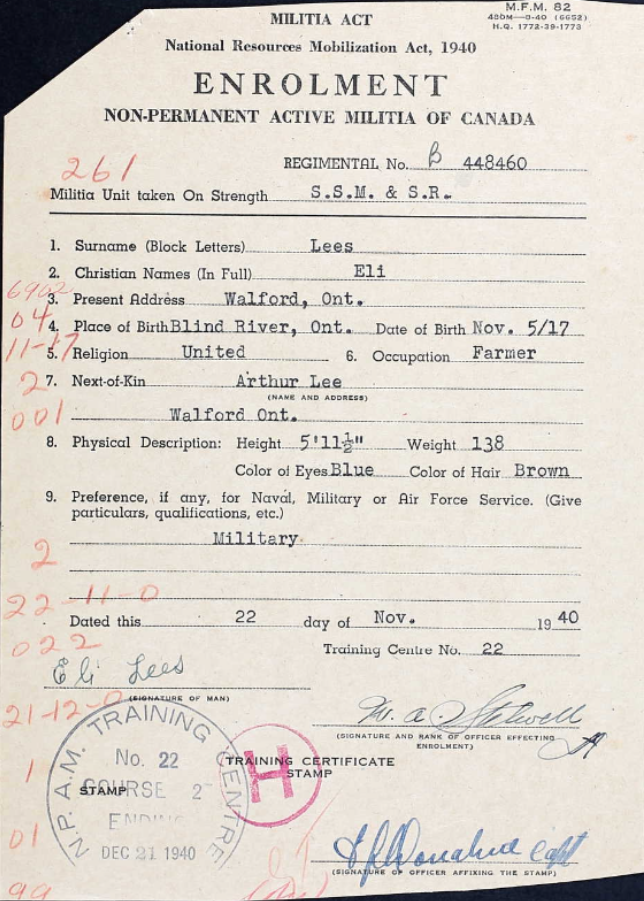 MILITIA ACT
M.F.M. 82
480M—9-40 (6652)
H.Q. 1772-39-1773
National Resources Mobilization Act, 1940
ENROLMENT
NON-PERMANENT ACTIVE MILITIA OF CANADA
261
REGIMENTAL No. B 448460
Militia Unit taken On Strength S.S.M. & S.R.
1. Surname (Block Letters) Lees
2. Christian Names (In Full) Eli
6902
3. Present Address Walford, Ont.
04
4. Place of Birth Blind River, Ont. Date of Birth Nov. 5/17
11-17
5. Religion United 6. Occupation Farmer
2
7. Next-of-Kin Arthur Lee
(NAME AND ADDRESS)
001
Walford Ont.
8. Physical Description: Height 5'11½" Weight 138
Color of Eyes Blue Color of Hair Brown
9. Preference, if any, for Naval, Military or Air Force Service. (Give
particulars, qualifications, etc.)
Military
2
22-11-0
Dated this 22 day of Nov. 1940
022
Training Centre No. 22
Eli Lees
(SIGNATURE OF MAN)
21-12-0
W. A.
(SIGNATURE AND RANK OF OFFICER EFFECTING
ENROLMENT)
N.P.A.M. TRAINING CENTRE
No. 22
COURSE 2
ENDING
DEC 21 1940
STAMP
H
TRAINING CERTIFICATE
STAMP
1
01
Donahue Capt
(SIGNATURE OF OFFICER AFFIXING THE STAMP)
99